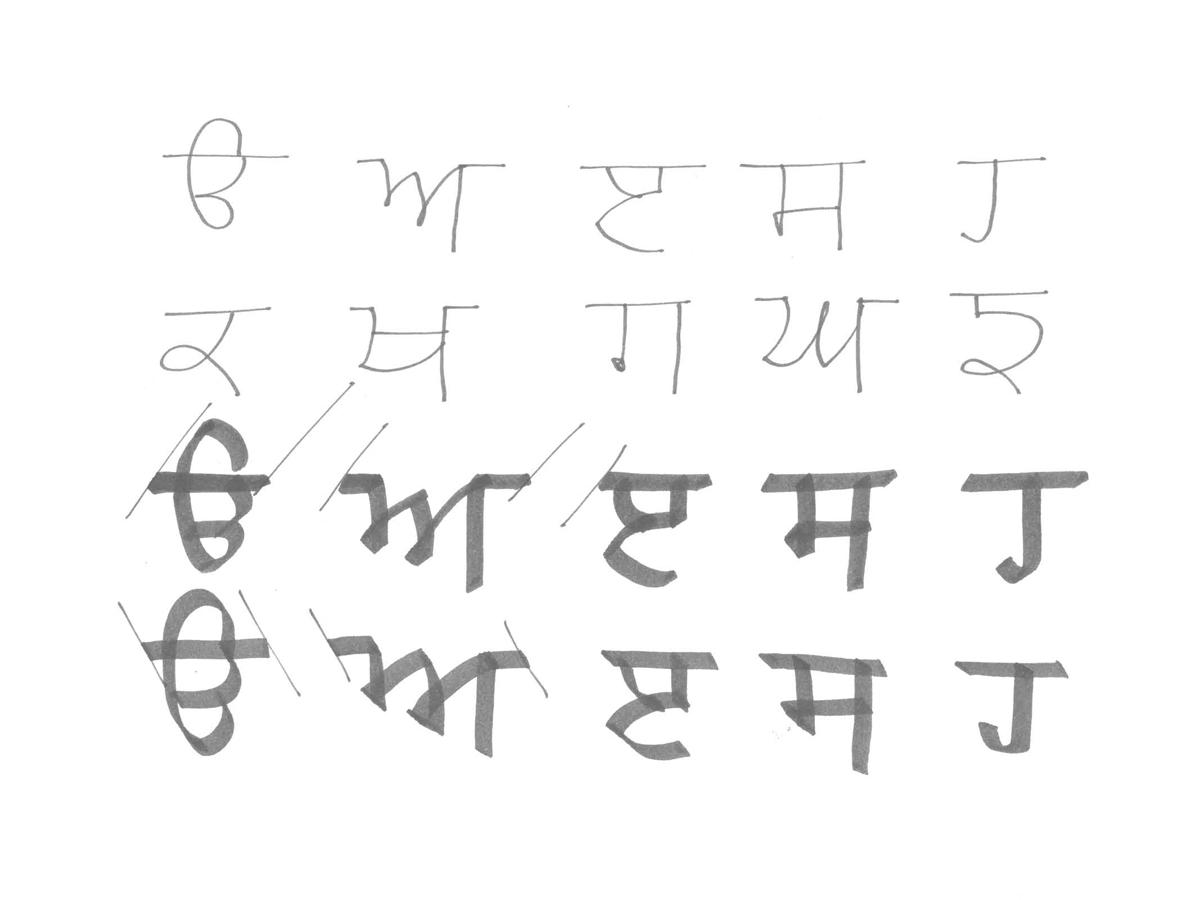 ੳ ਅ ੲ ਸ ਹ
ਕ ਖ ਗ ਘ ਙ
ੳ ਅ ੲ ਸ ਹ
ੳ ਅ ੲ ਸ ਹ